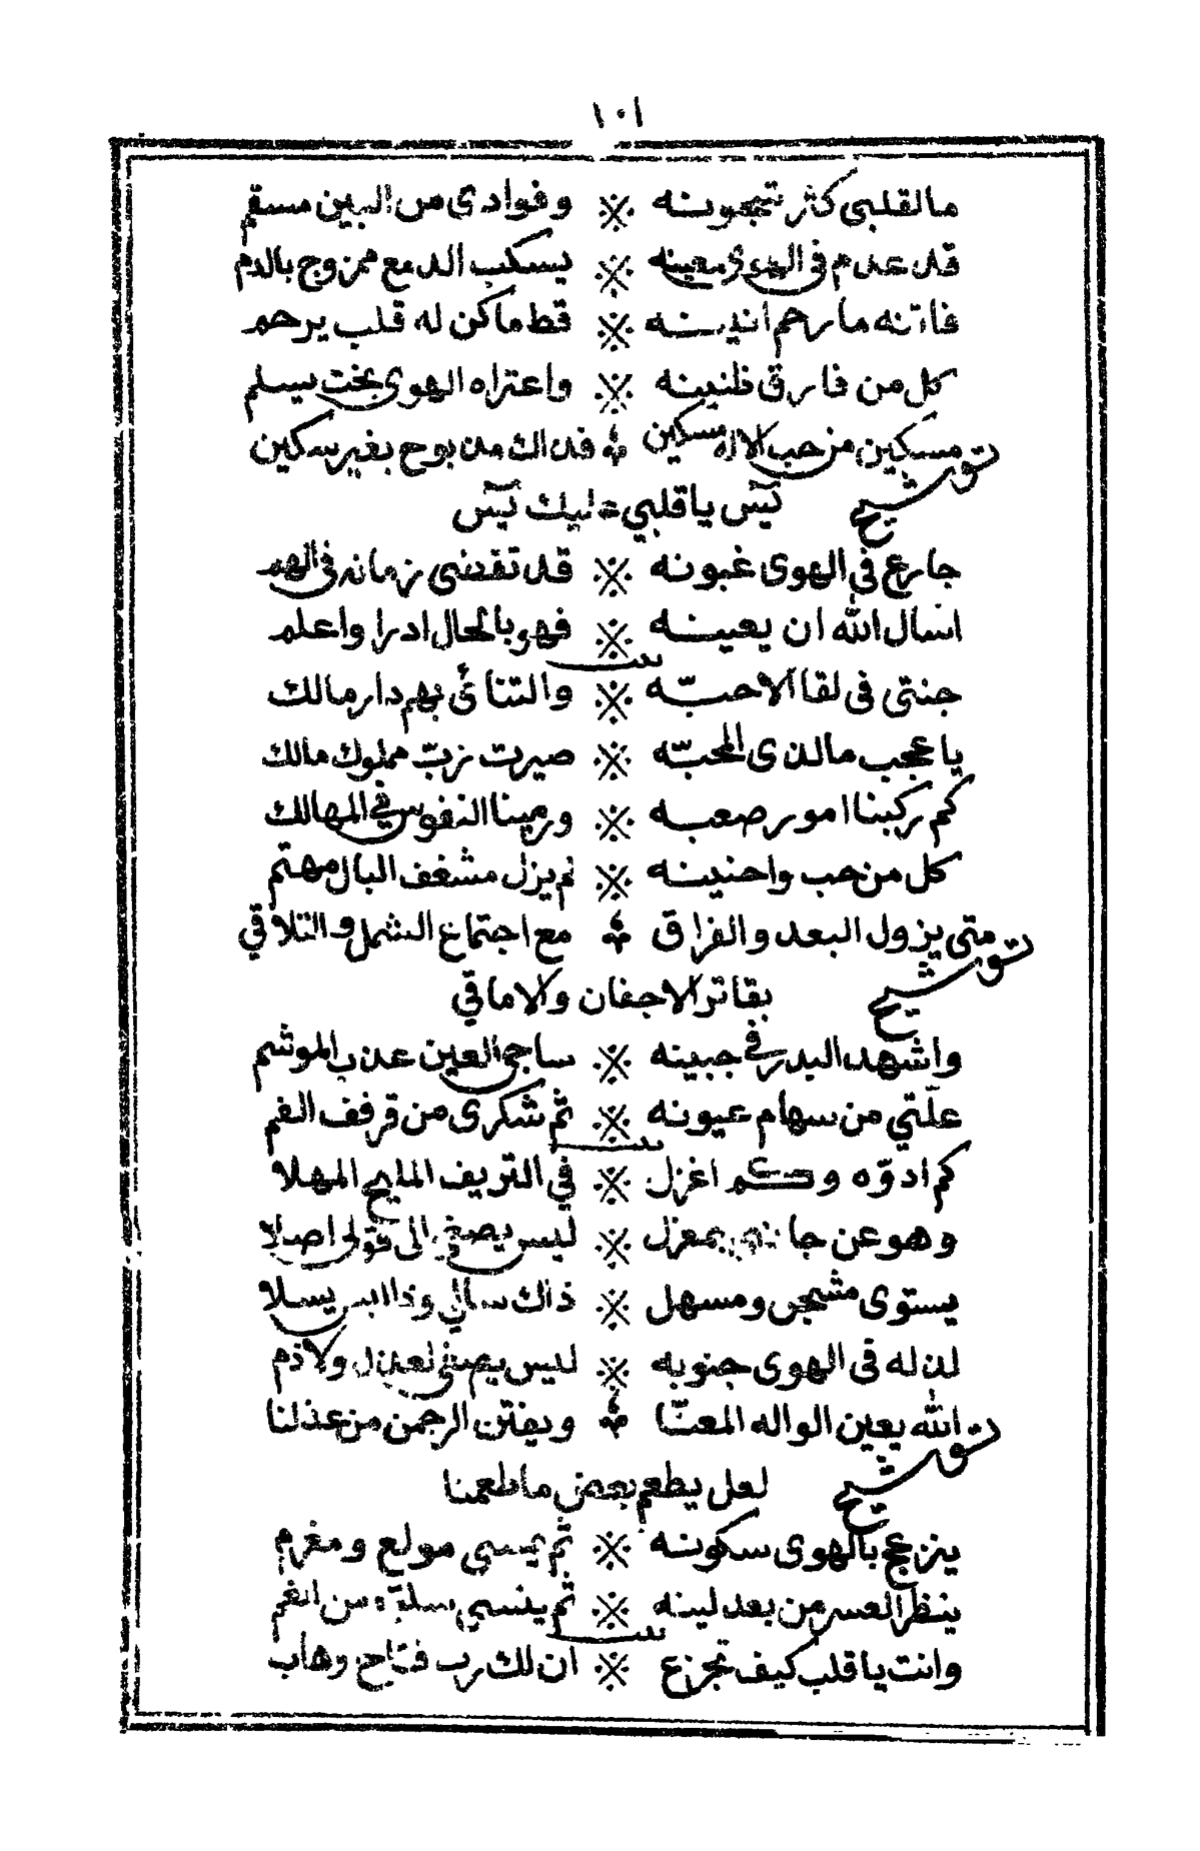 ١٠١
مالقلبي كثر تمجونه ※ وفوادي من البين مسقم
قد عدم فى الهوى معينه ※ يسكب الدمع ممزوج بالدم
فاتنه مارحم انينه ※ قط ماكن له قلب يرحم
كل من فارق ظنينه ※ واعتراه الهوى بخت يسلم
توشيح مسكين من حب الاله مسكين ※ فداك من بوح بغير سكين
يٓس ياقلبي عليك يٓس
جارع فى الهوى غبونه ※ قد تقضى زمانه فى الهد
اسال الله ان يعينه ※ فهو بالحال ادرا واعلم
بيت
جنتى فى لقا الاحبّه ※ والتنائي بهم دار مالك
يا عجب مالذى المحبّه ※ صيرت ربّ مملوك مالك
كم ركبنا امور صعبه ※ ورمينا النفوس في المهالك
كل من حب واحنينه ※ لم يزل مشغف البال مهتم
توشيح متى يزول البعد والفراق ※ مع اجتماع الشمل والتلاقي
بفاتر الاجفان والاماقي
واشهد البدر في جبينه ※ ساجي العين عذب الموشم
علّتي من سهام عيونه ※ ثم شكرى من قرفف الفم
بيت
كم ادوّه وكم اغزل ※ في التريف المليح المهلا
وهو عن جا بمعزل ※ ليس يصغي الى قولى اصلا
يستوى مشجى ومسهل ※ ذاك سالي وذا ليس يسلا
لذ له فى الهوى جنوبه ※ ليس يصغى لعذل ولاذم
توشيح الله يعين الواله المعنّا ※ ويفتن الرحمن من عذلنا
لعل يطعم بعض ماطعمنا
ينزعج بالهوى سكونه ※ ثم يمسي مولع ومغرم
ينظر العسر من بعد لينه ※ ثم ينسى من الغم
بيت
وانت يا قلب كيف تجزع ※ ان لك رب فتاح وهاب